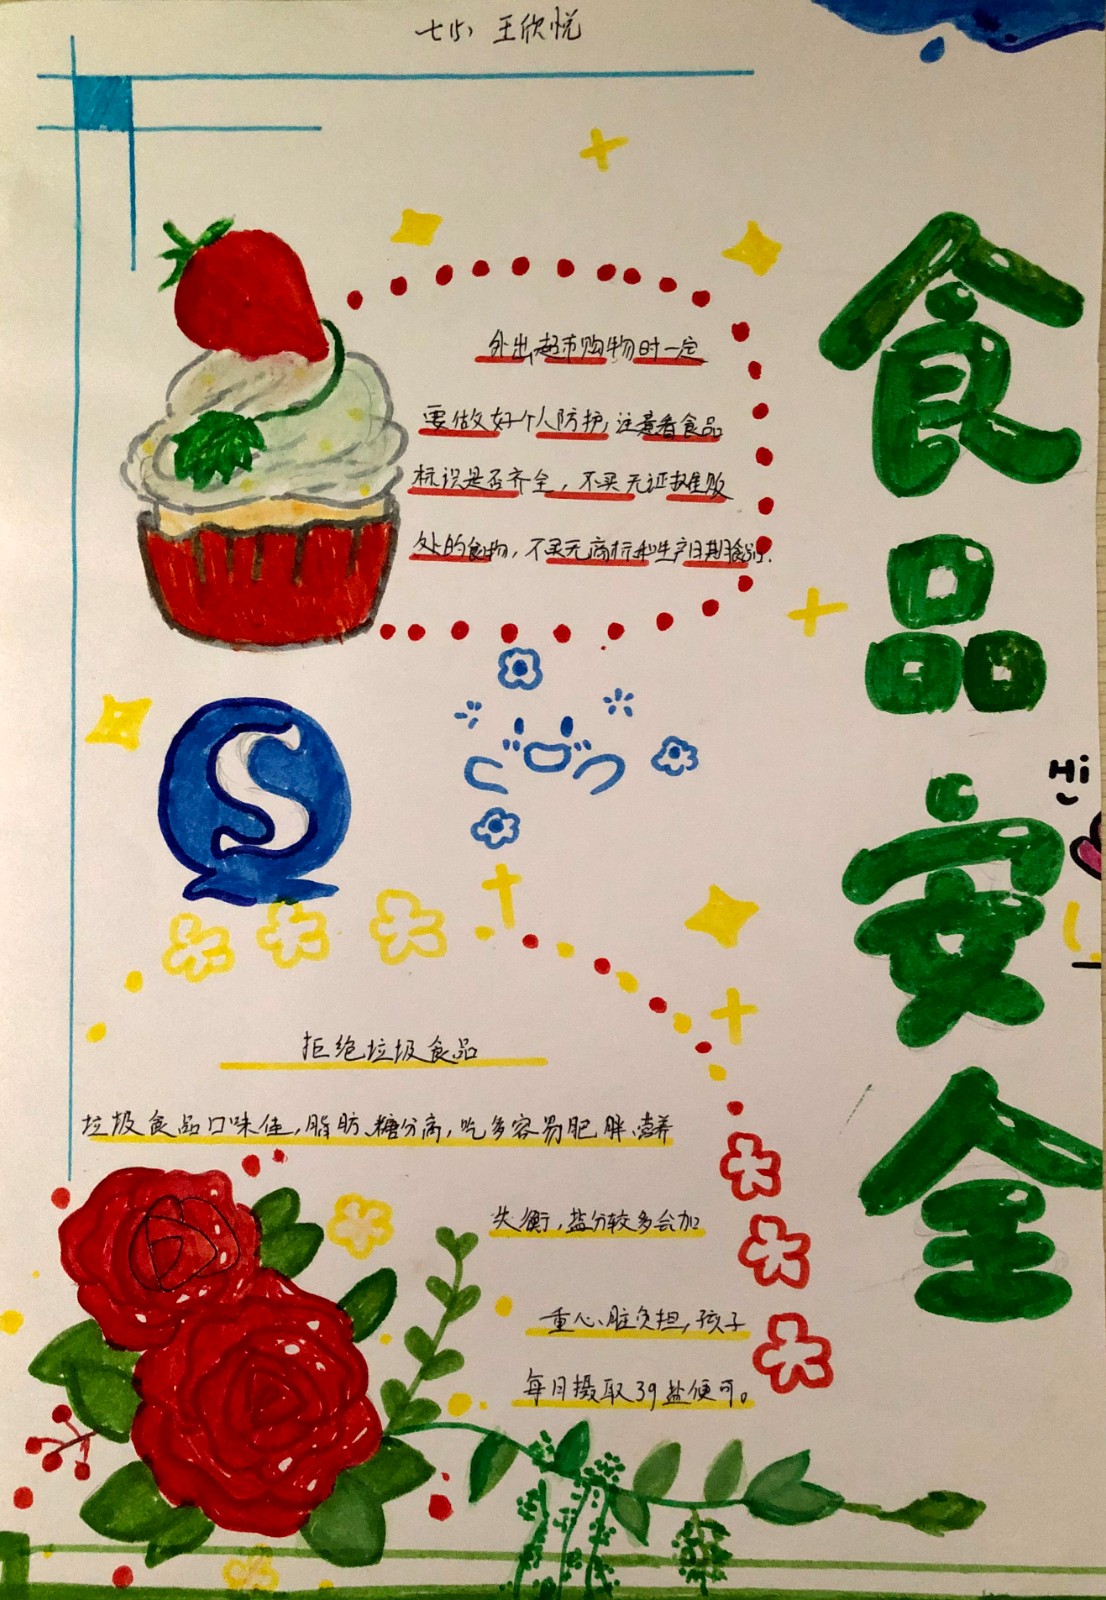 七(5) 王欣悦
食品安全
外出超市购物时一定
要做好个人防护,注意看食品
标识是否齐全,不买无证摊贩
处的食物,不买无商标和生产日期食品.
Hi
S
拒绝垃圾食品
垃圾食品口味佳,脂肪、糖分高,吃多容易肥胖、营养
失衡,盐分较多会加
重心脏负担,孩子
每月摄取39盐便可。